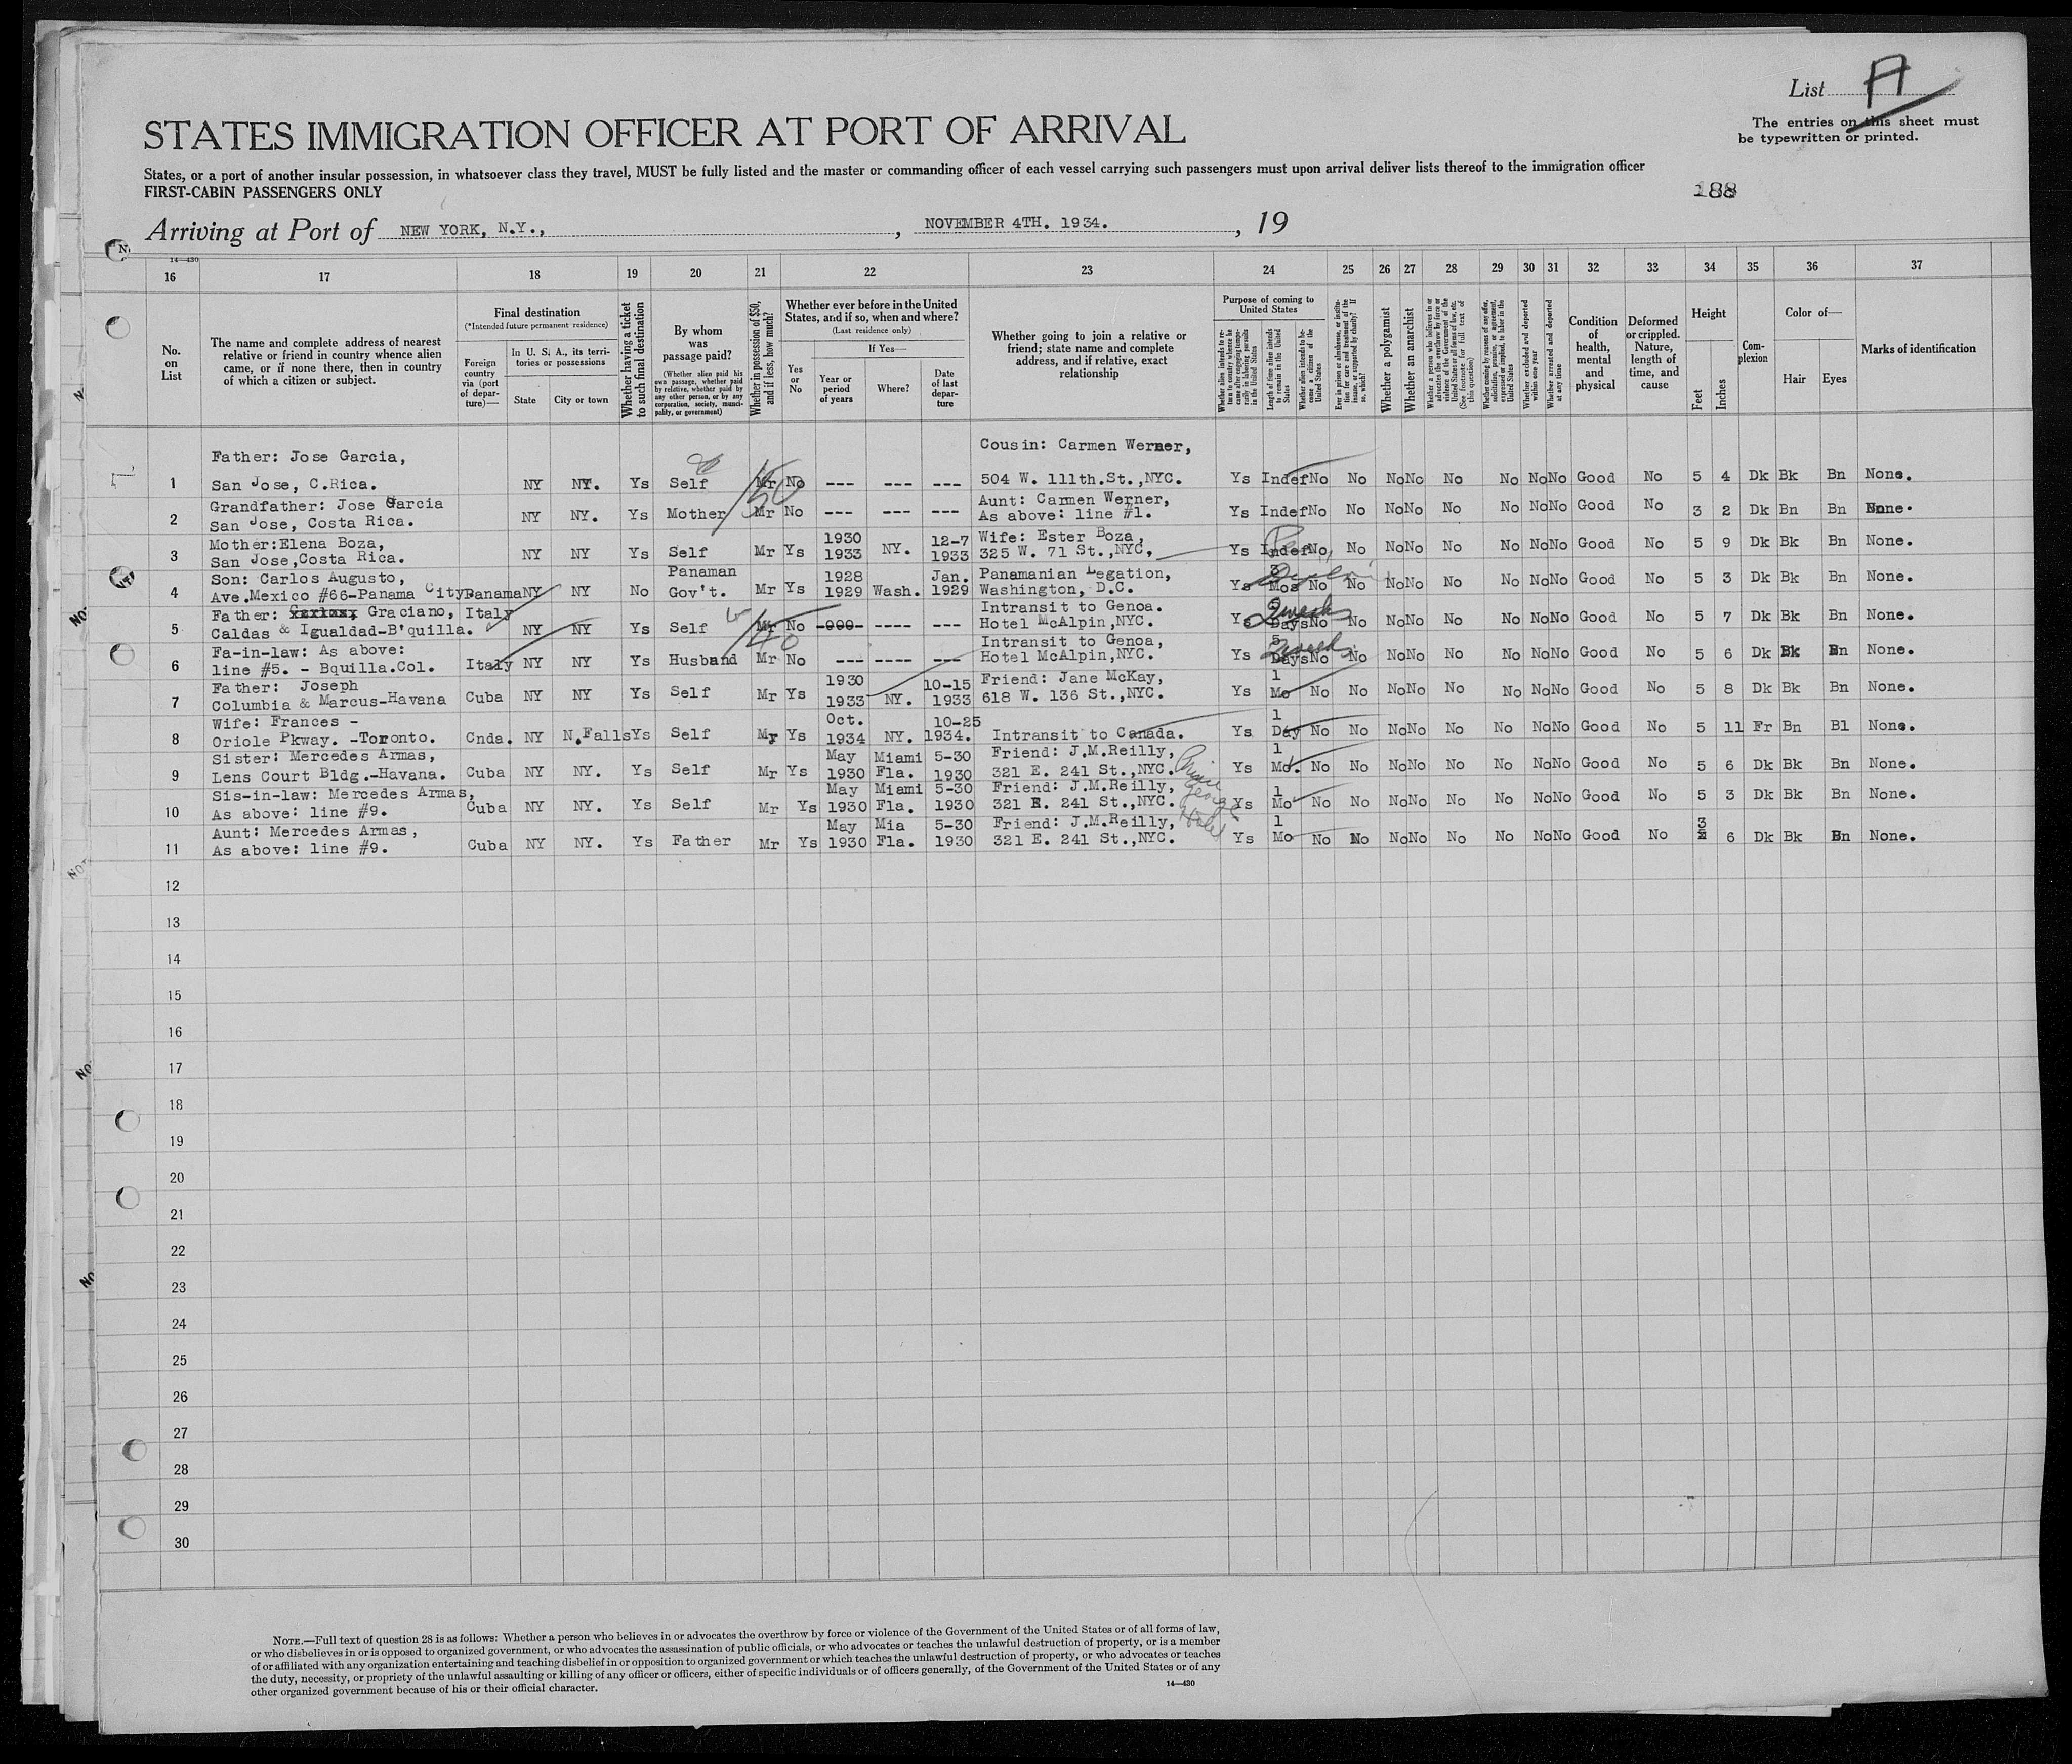 List A
The entries on this sheet must
be typewritten or printed.
STATES IMMIGRATION OFFICER AT PORT OF ARRIVAL
States, or a port of another insular possession, in whatsoever class they travel, MUST be fully listed and the master or commanding officer of each vessel carrying such passengers must upon arrival deliver lists thereof to the immigration officer
FIRST-CABIN PASSENGERS ONLY
188
Arriving at Port of NEW YORK, N.Y., , NOVEMBER 4TH. 1934. , 19
14—430
16 17 18 19 20 21 22 23 24 25 26 27 28 29 30 31 32 33 34 35 36 37
No. on List
The name and complete address of nearest relative or friend in country whence alien came, or if none there, then in country of which a citizen or subject.
Final destination
(*Intended future permanent residence)
Foreign country via (port of departure)—
In U. S. A., its territories or possessions
State
City or town
Whether having a ticket to such final destination
By whom was passage paid?
(Whether alien paid his own passage, whether paid by relative, whether paid by any other person, or by any corporation, society, municipality, or government)
Whether in possession of $50, and if less, how much?
Whether ever before in the United States, and if so, when and where?
(Last residence only)
If Yes—
Yes or No
Year or period of years
Where?
Date of last departure
Whether going to join a relative or friend; state name and complete address, and if relative, exact relationship
Purpose of coming to United States
Whether alien intends to return to country whence he came after engaging temporarily in laboring pursuits in the United States
Length of time alien intends to remain in the United States
Whether alien intends to become a citizen of the United States
Ever in prison or almshouse, or institution for care and treatment of the insane, or supported by charity? If so, which?
Whether a polygamist
Whether an anarchist
Whether a person who believes in or advocates the overthrow by force or violence of the Government of the United States or all forms of law, etc. (See footnote for full text of this question)
Whether coming by reason of any offer, solicitation, promise, or agreement, expressed or implied, to labor in the United States
Whether excluded and deported within one year
Whether arrested and deported at any time
Condition of health, mental and physical
Deformed or crippled. Nature, length of time, and cause
Height
Feet
Inches
Complexion
Color of—
Hair
Eyes
Marks of identification
Father: Jose Garcia, Cousin: Carmen Werner,
1 San Jose, C.Rica. NY NY. Ys Self Mr No --- --- --- 504 W. 111th.St.,NYC. Ys Indef No No No No No No No No Good No 5 4 Dk Bk Bn None.
150
Grandfather: Jose Garcia Aunt: Carmen Werner,
2 San Jose, Costa Rica. NY NY. Ys Mother Mr No --- --- --- As above: line #1. Ys Indef No No No No No No No No Good No 3 2 Dk Bn Bn None.
Mother:Elena Boza, 1930 12-7 Wife: Ester Boza,
3 San Jose,Costa Rica. NY NY Ys Self Mr Ys 1933 NY. 1933 325 W. 71 St.,NYC, Ys Indef No No No No No No No No Good No 5 9 Dk Bk Bn None.
Son: Carlos Augusto, Panaman 1928 Jan. Panamanian Legation, 3
4 Ave.Mexico #66-Panama City Panama NY NY No Gov't. Mr Ys 1929 Wash. 1929 Washington, D.C. Ys Mos No No No No No No No No Good No 5 3 Dk Bk Bn None.
Father: Graciano, Italy Intransit to Genoa. 2 weeks
5 Caldas & Igualdad-B'quilla. NY NY Ys Self Mr No -000- ---- --- Hotel McAlpin,NYC. Ys Days No No No No No No No No Good No 5 7 Dk Bk Bn None.
140
Fa-in-law: As above: Intransit to Genoa, 5 2 weeks
6 line #5. - Bquilla.Col. Italy NY NY Ys Husband Mr No --- ---- --- Hotel McAlpin,NYC. Ys Days No No No No No No No No Good No 5 6 Dk Bk Bn None.
Father: Joseph 1930 10-15 Friend: Jane McKay, 1
7 Columbia & Marcus-Havana Cuba NY NY Ys Self Mr Ys 1933 NY. 1933 618 W. 136 St.,NYC. Ys Mo No No No No No No No No Good No 5 8 Dk Bk Bn None.
Wife: Frances - Oct. 10-25 1
8 Oriole Pkway. -Toronto. Cnda. NY N.Falls Ys Self Mr Ys 1934 NY. 1934. Intransit to Canada. Ys Day No No No No No No No No Good No 5 11 Fr Bn Bl None.
Sister: Mercedes Armas, May Miami 5-30 Friend: J.M.Reilly, 1
9 Lens Court Bldg.-Havana. Cuba NY NY. Ys Self Mr Ys 1930 Fla. 1930 321 E. 241 St.,NYC. Ys Mo. No No No No No No No No Good No 5 6 Dk Bk Bn None.
Prince George Hotel
Sis-in-law: Mercedes Armas, May Miami 5-30 Friend: J.M.Reilly, 1
10 As above: line #9. Cuba NY NY. Ys Self Mr Ys 1930 Fla. 1930 321 E. 241 St.,NYC. Ys Mo No No No No No No No No Good No 5 3 Dk Bk Bn None.
Aunt: Mercedes Armas, May Mia 5-30 Friend: J.M.Reilly, 1 3
11 As above: line #9. Cuba NY NY. Ys Father Mr Ys 1930 Fla. 1930 321 E. 241 St.,NYC. Ys Mo No No No No No No No No Good No 6 Dk Bk Bn None.
12
13
14
15
16
17
18
19
20
21
22
23
24
25
26
27
28
29
30
NOTE.—Full text of question 28 is as follows: Whether a person who believes in or advocates the overthrow by force or violence of the Government of the United States or of all forms of law,
or who disbelieves in or is opposed to organized government, or who advocates the assassination of public officials, or who advocates or teaches the unlawful destruction of property, or is a member
of or affiliated with any organization entertaining and teaching disbelief in or opposition to organized government or which teaches the unlawful destruction of property, or who advocates or teaches
the duty, necessity, or propriety of the unlawful assaulting or killing of any officer or officers, either of specific individuals or of officers generally, of the Government of the United States or of any
other organized government because of his or their official character.
14—430